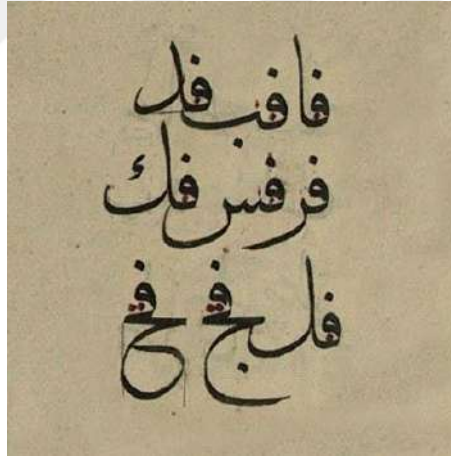 فا فب فد
فر فس فك
فل فج فح